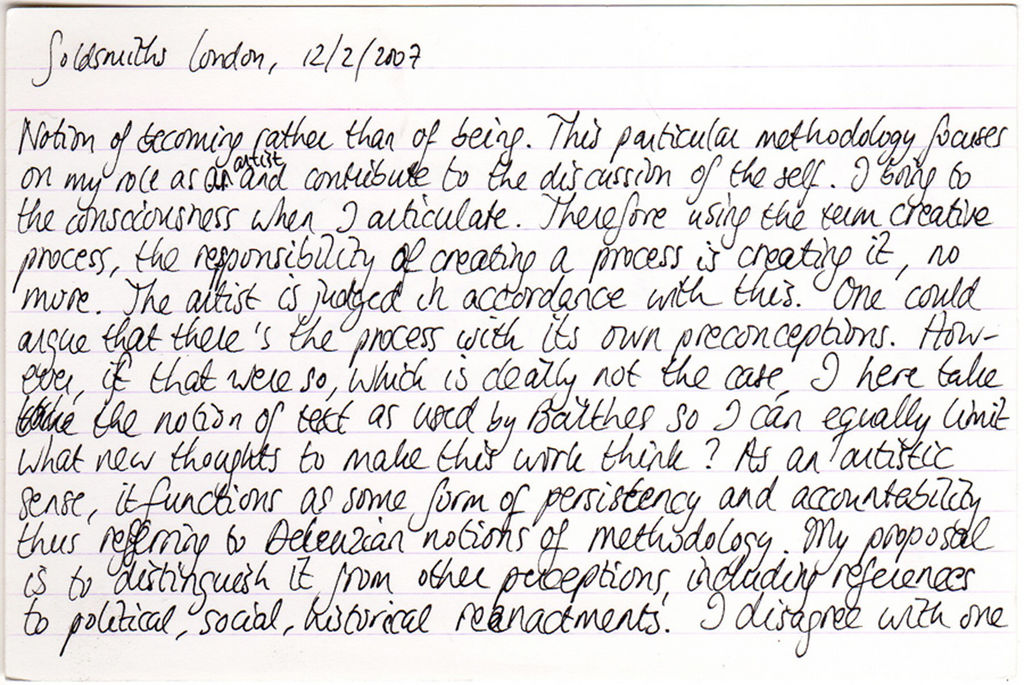 Goldsmiths London, 12/2/2007
Notion of becoming rather than of being. This particular methodology focuses
on my role as an artist and contribute to the discussion of the self. I bring to
the consciousness when I articulate. Therefore using the term creative
process, the responsibility of creating a process is creating it, no
more. The artist is judged in accordance with this. One could
argue that there's the process with its own preconceptions. How-
ever, if that were so, which is clearly not the case, I here take
the notion of text as used by Barthes so I can equally limit
what new thoughts to make this work think? As an artistic
sense, it functions as some form of persistency and accountability
thus referring to Deleuzian notions of methodology. My proposal
is to distinguish it from other perceptions, including references
to political, social, historical reenactments. I disagree with one